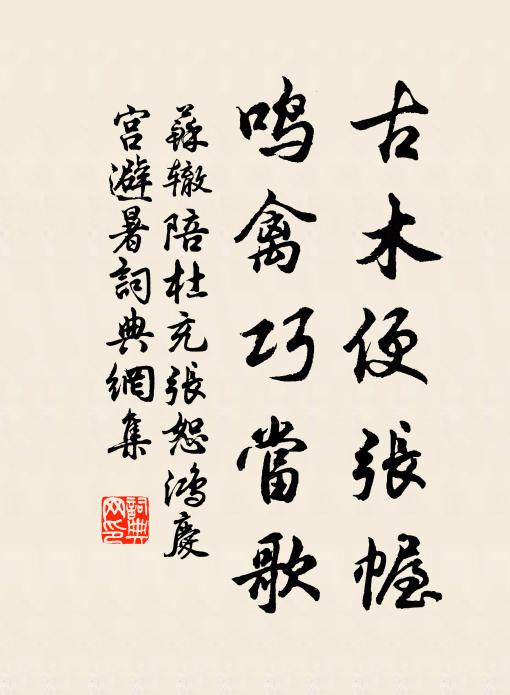 古木便張幄
鳴禽巧當歌
蘇轍陪杜充張恕鴻慶
宮避暑詞典網集
詞典
網印